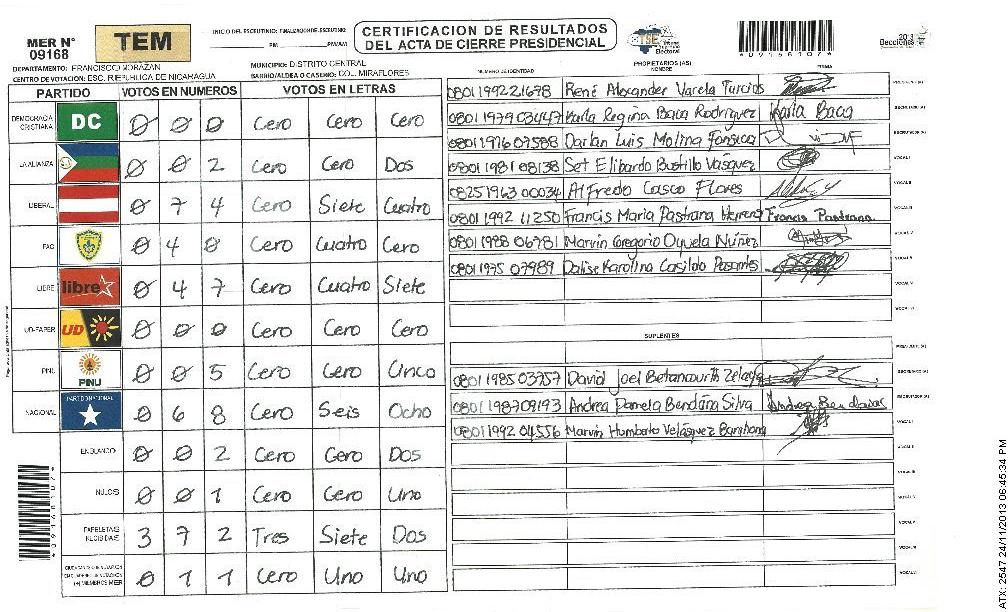 MER N° 09168
TEM
INICIO DEL ESCRUTINIO: FINALIZACION DEL ESCRUTINIO:
PM PM/AM
CERTIFICACION DE RESULTADOS
DEL ACTA DE CIERRE PRESIDENCIAL
TSE Tribunal Supremo Electoral
2013
Elecciones
DEPARTAMENTO: FRANCISCO MORAZAN
MUNICIPIO: DISTRITO CENTRAL
CENTRO DE VOTACION: ESC. REPUBLICA DE NICARAGUA
BARRIO/ALDEA O CASERIO: COL. MIRAFLORES
PARTIDO VOTOS EN NUMEROS VOTOS EN LETRAS
DEMOCRACIA CRISTIANA DC 0 0 0 Cero Cero Cero
LA ALIANZA 0 0 2 Cero Cero Dos
LIBERAL 0 7 4 Cero Siete Cuatro
PAC 0 4 0 Cero Cuatro Cero
LIBRE libre 0 4 7 Cero Cuatro Siete
UD-FAPER UD 0 0 0 Cero Cero Cero
PINU PINU 0 0 5 Cero Cero Cinco
NACIONAL PARTIDO NACIONAL 0 6 8 Cero Seis Ocho
EN BLANCO 0 0 2 Cero Cero Dos
NULOS 0 0 1 Cero Cero Uno
PAPELETAS RECIBIDAS 3 7 2 Tres Siete Dos
(+) MIEMBROS MER 0 1 1 Cero Uno Uno
NUMERO DE IDENTIDAD PROPIETARIOS (AS) NOMBRE FIRMA
0801 1992 21698 René Alexander Varela Turcios PRESIDENTE (A)
0801 1979 03447 Karla Regina Baca Rodriguez Karla Baca SECRETARIO (A)
0801 1976 07588 Darlan Luis Molina Fonseca ESCRUTADOR (A)
0801 1981 08138 Set Elibardo Bustillo Vasquez VOCAL I
0825 1963 00034 Alfredo Casco Flores VOCAL II
0801 1992 11250 Francis Maria Pastrana Herrera Francis Pastrana VOCAL III
0801 1988 06781 Marvin Gregorio Oyuela Nuñez VOCAL IV
0801 1975 07989 Dalise Karolina Casildo VOCAL V
VOCAL VI
SUPLENTES
PRESIDENTE (A)
0801 1985 03757 David Joel Betancourth Zelaya SECRETARIO (A)
0801 1987 09193 Andrea Pamela Bendaña Silva Andrea Bendaña ESCRUTADOR (A)
0801 1992 04556 Marvin Humberto Velásquez Barahona VOCAL I
VOCAL II
VOCAL III
VOCAL IV
VOCAL V
VOCAL VI
*09168107*
*09168107*
ATX: 2547 24/11/2013 06:45:34 PM